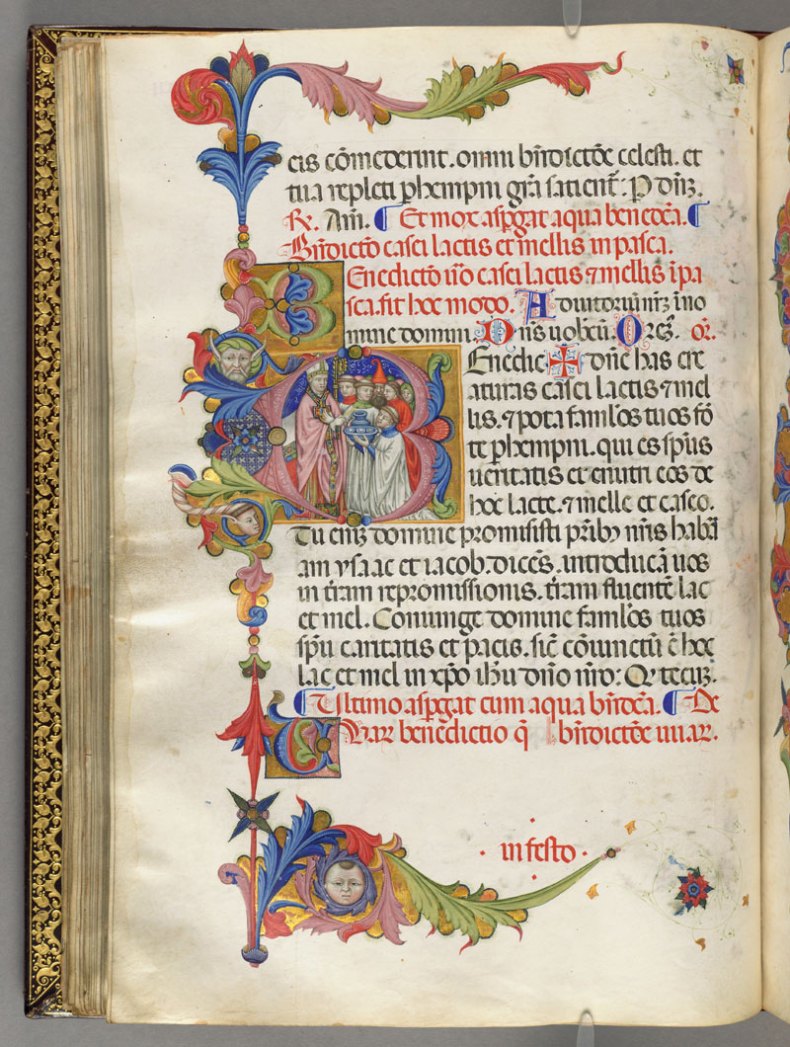 cis comederint. omni bn̄dictōe celesti. et
tua repleti p̱ xp̄m dn̄m grā satient̄: P dn̄z.
R̷. Am̄. ¶ Et mox asp̱gat aqua benedc̄a. ¶
Bn̄dictō casei lactis et mellis in pasca.
Benedictō u͞o casei lactis ⁊ mellis ī pa
sca. fit hoc modo. Adiutoriū nr̄z ī no
mine domini. Dn̄s uobcū. Orēs. or̄.
Benedic ✠ dn̄e has cre
aturas casei lactis ⁊ mel
lis. ⁊ pota famlōs tuos fō
te p̱hempni. qui es sp̄us
ueritatis et enutri eos de
hoc lacte. ⁊ melle et caseo.
Tu enīz domine promisisti pr̄ib⁹ nr̄is habrā
am ysaac et iacob. dicēs. introducā uos
in tr̄am repromissionis. tr̄am fluentē lac
et mel. Coniunge domine famlōs tuos
sp̄u caritatis et pacis. sic̄ cōiunctū ē hoc
lac et mel in xp̄o ih̄u dn̄o nr̄o: Q' tecūz.
¶ Ultimo asp̱gat cum aqua bn̄dc̄a. ¶ De
Uuar benedictio q̄ bn̄dictōe uuar̄.
· in festo ·